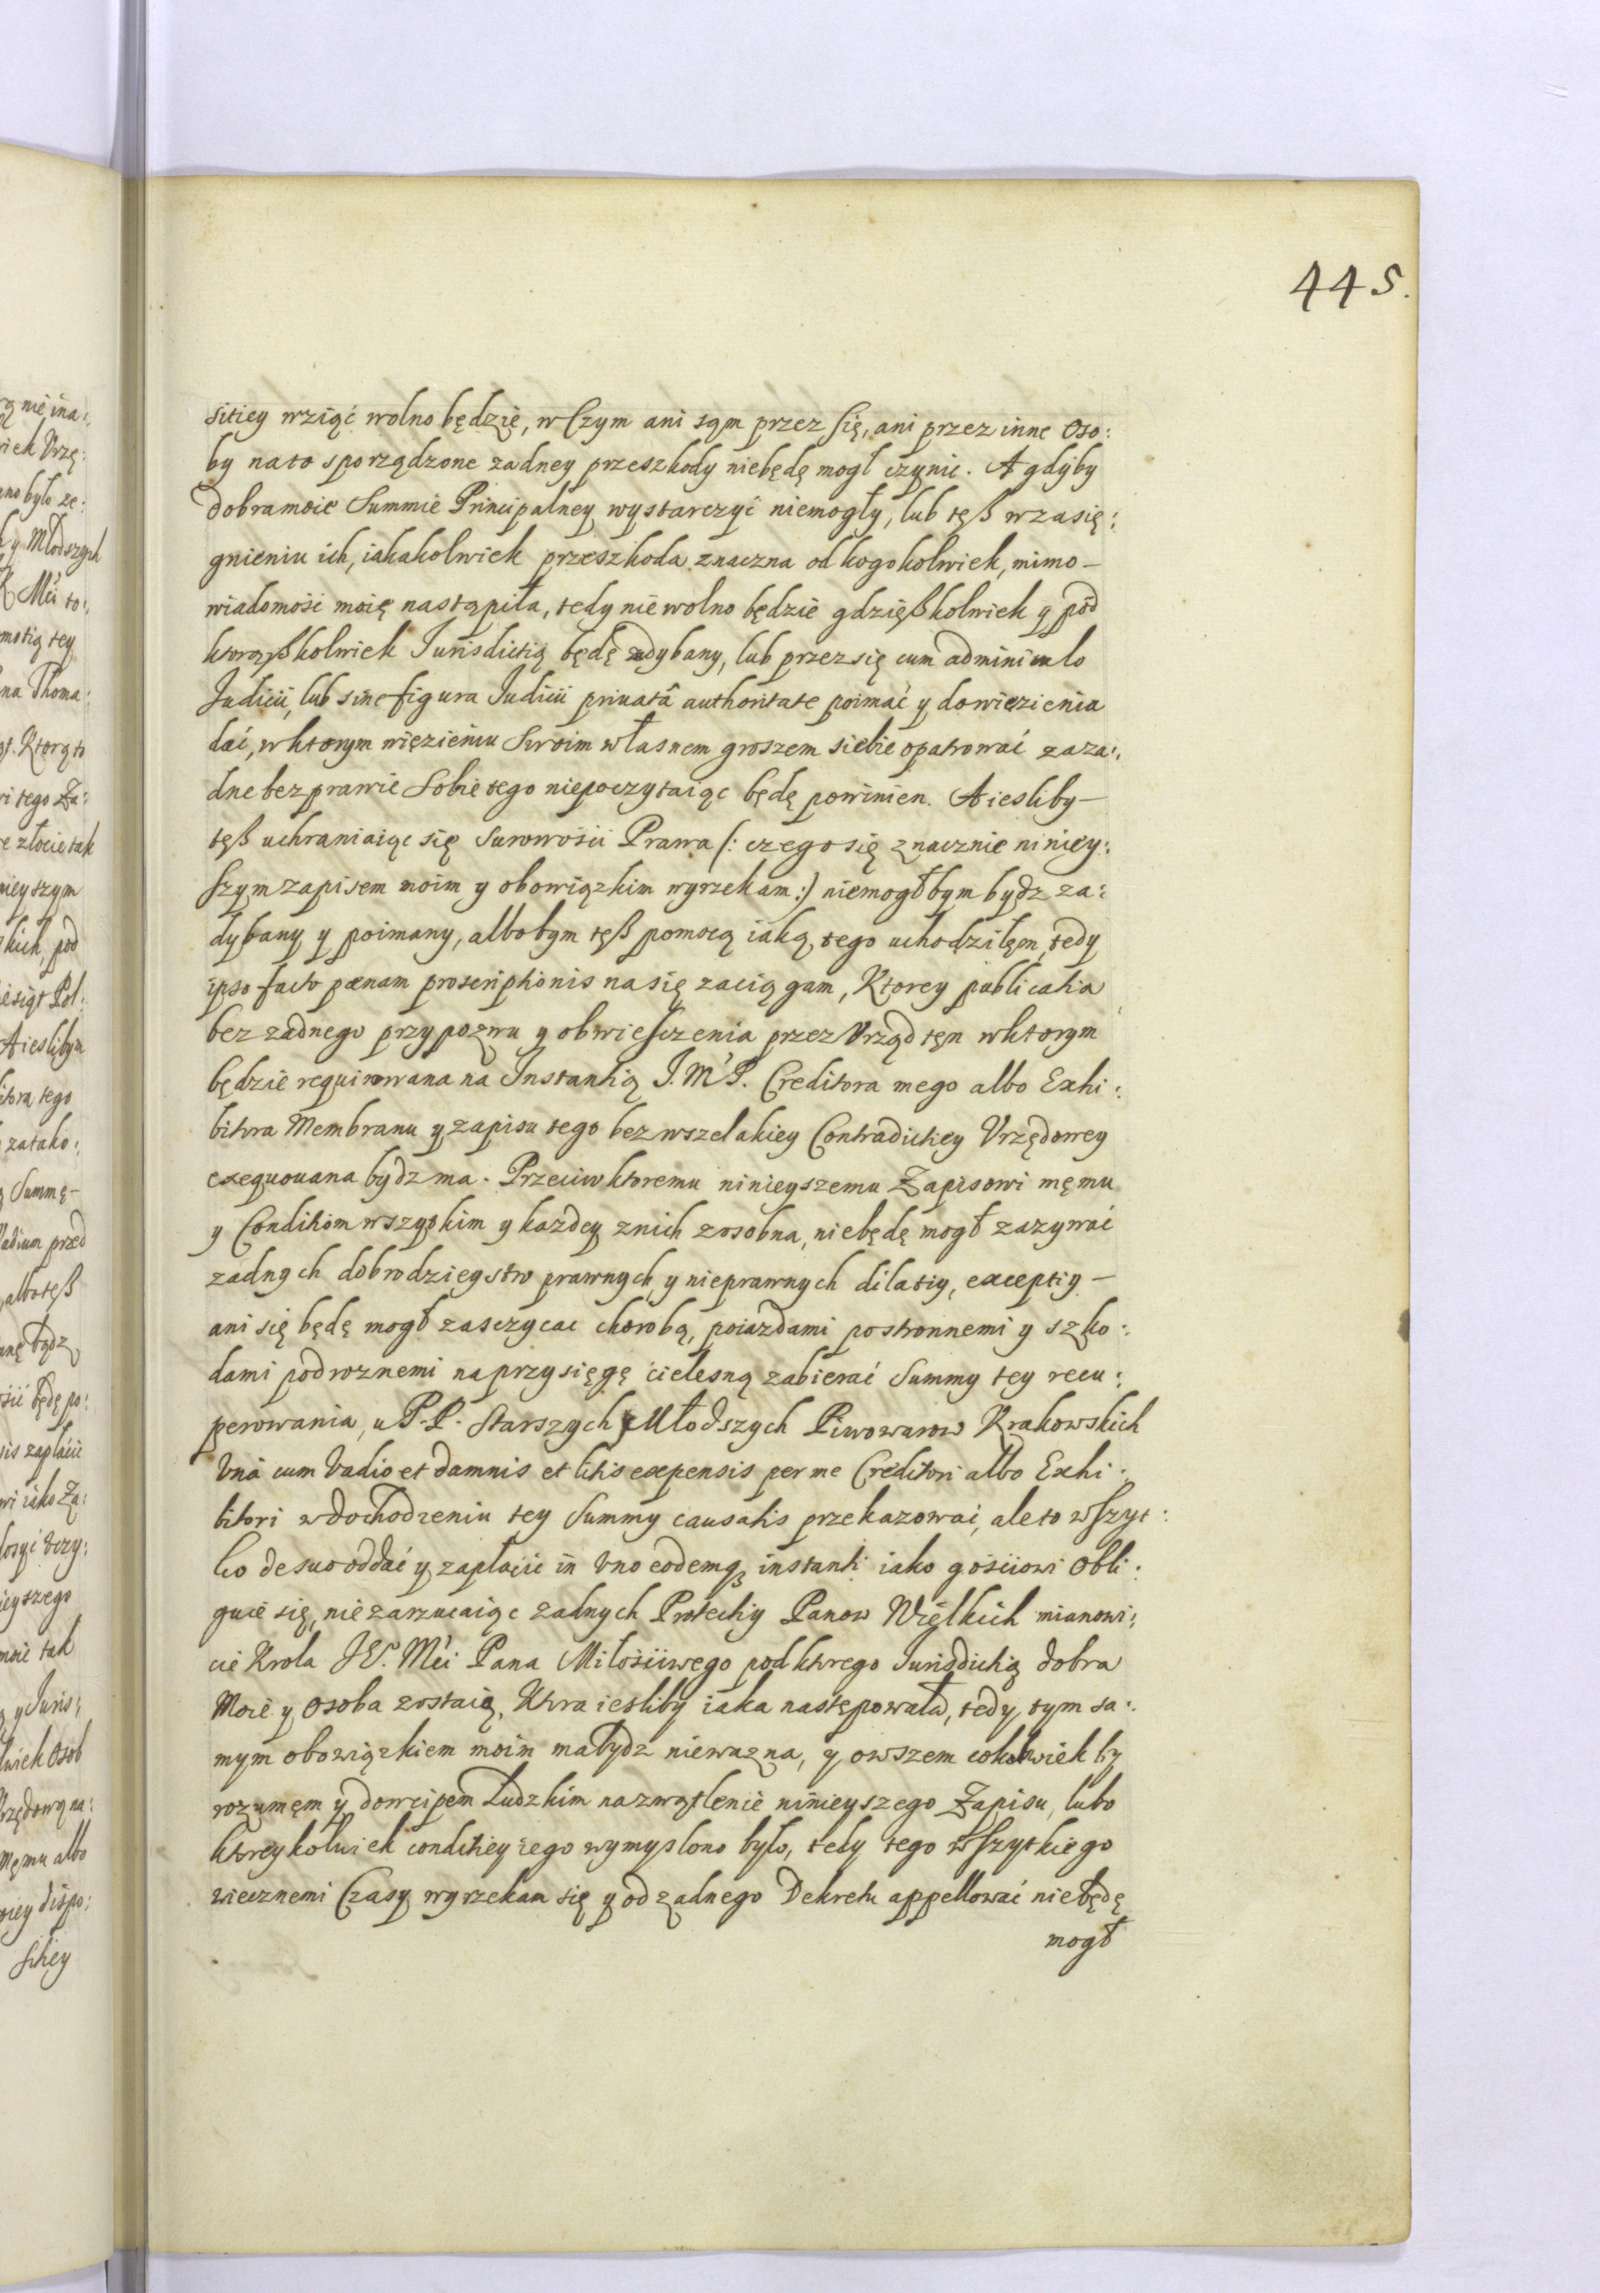 445.
sitiey wziąć wolno będzie, w Czym ani sąm przez się, ani przez inne oso:
by na to sporządzone zadney przeszkody niebędę mogł czynic. A gdÿby
dobra moie Summie Principalney wystarczyć niemogły, lub tęß w zasię:
gnieniu ich, iakakolwiek przeszkoda znaczna od kogokolwiek, mimo-
wiadomość moię nastąpiła, tedy nie wolno będzie gdzięßkolwiek y pod
ktorąßkolwiek Jurisdictią będę zdybany, lub przez się cum adminiculo
Judicii, lub sine figura Iudicii priuatâ authoritate poimać y do wiezienia
dać, w ktorym więzieniu Swoim własnem groszem siebie opatrować za za:
dne bezprawie Sobie tego niepoczytaiąc będę powinien. A iesliby-
tęß uchraniaiąc się Surowości Prawa (: czego się znacznie niniey:
szym zapisem moim y obowiązkim wyrzekam :) niemogłbym bydz za:
dybany y poimany, albobym tęß pomocą iaką tego uchodziłęm, tedy
ipso facto pænam proscriptionis na się zaciągam, Ktorey publicatia
bez zadnego przypozwu y obwiesczenia przez Vrząd tęn w ktorym
będzie requirowana na Instantią J. M. P. Creditora mego albo Exhi:
bitora Membranu y zapisu tego bez wszelakiey Contradictiey Vrzędowey
exequouana bydz ma. Przeciw ktoremu ninieyszemu Zapisowi męmu
y Conditiom wszyskim y kazdey z nich zosobna, niebędę mogł zazywać
zadnych dobrodzieystw prawnych, y nieprawnych dilatiy, exceptiy-
ani się będę mogł zasczycac chorobą, poiazdami postronnemi y szko:
dami podroznemi na przysięgę cielesną zabierać Summy tey recu:
perowania, u P. P. Starszych y Młodszych Piwowarow Krakowskich
Vnà cum Vadio et damnis et litis expensis per me Creditori albo Exhi:
bitori w dochodzeniu tey Summy causatis przekazować, ale to wszyt:
ko de suo oddać y zapłacić in Vno eodemq3 instanti iako gościowi obli:
guie się, nie zarzucaiąc zadnych Protectiy Panow Wielkich mianowi:
cie Krola JE. Mci Pana Miłościwego pod ktorego Jurisdictią dobra
Moie y osoba zostaią, Ktora iesliby iaka następowała, tedy tym sa:
mym obowiązkiem moim ma bydz niewazna, y owszem cokolwiek by
rozumęm y dowcipem Ludzkim na zwątlenie ninieyszego Zapisu, lubo
ktoreykolwiek conditiey iego wymyslono było, tedy tego wszytkiego
wiecznemi Czasy wyrzekam się y od zadnego Dekretu appellować niebędę
mogł